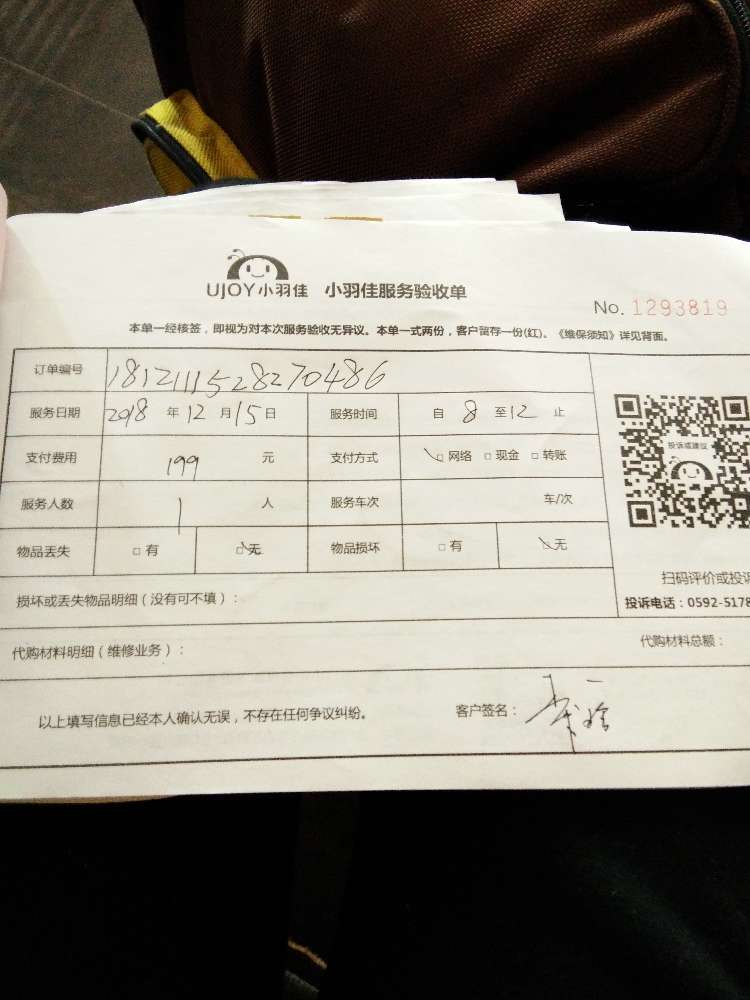 UJOY小羽佳 小羽佳服务验收单
No. 1293819
本单一经核签，即视为对本次服务验收无异议。本单一式两份，客户留存一份(红)。《维保须知》详见背面。
订单编号 1812111528270486
服务日期 2018 年 12 月 15 日 服务时间 自 8 至 12 止
投诉或建议
支付费用 199 元 支付方式 □网络 □现金 □转账
服务人数 1 人 服务车次 车/次
物品丢失 □有 □无 物品损坏 □有 □无
扫码评价或投诉
损坏或丢失物品明细（没有可不填）：
投诉电话：0592-5178
代购材料明细（维修业务）： 代购材料总额：
以上填写信息已经本人确认无误，不存在任何争议纠纷。 客户签名：